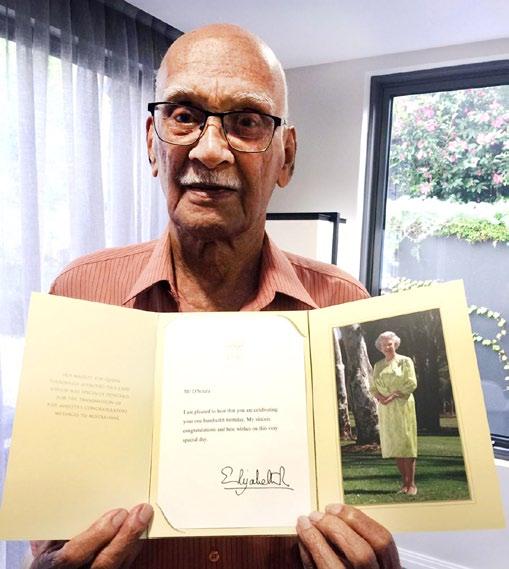 HER MAJESTY THE QUEEN
GRACIOUSLY APPROVED THIS CARD
WHICH WAS SPECIALLY DESIGNED
FOR THE TRANSMISSION OF
HER MAJESTY'S CONGRATULATORY
MESSAGES TO AUSTRALIANS
Mr D'Souza
I am pleased to hear that you are celebrating
your one hundredth birthday. My sincere
congratulations and best wishes on this very
special day.
Elizabeth R